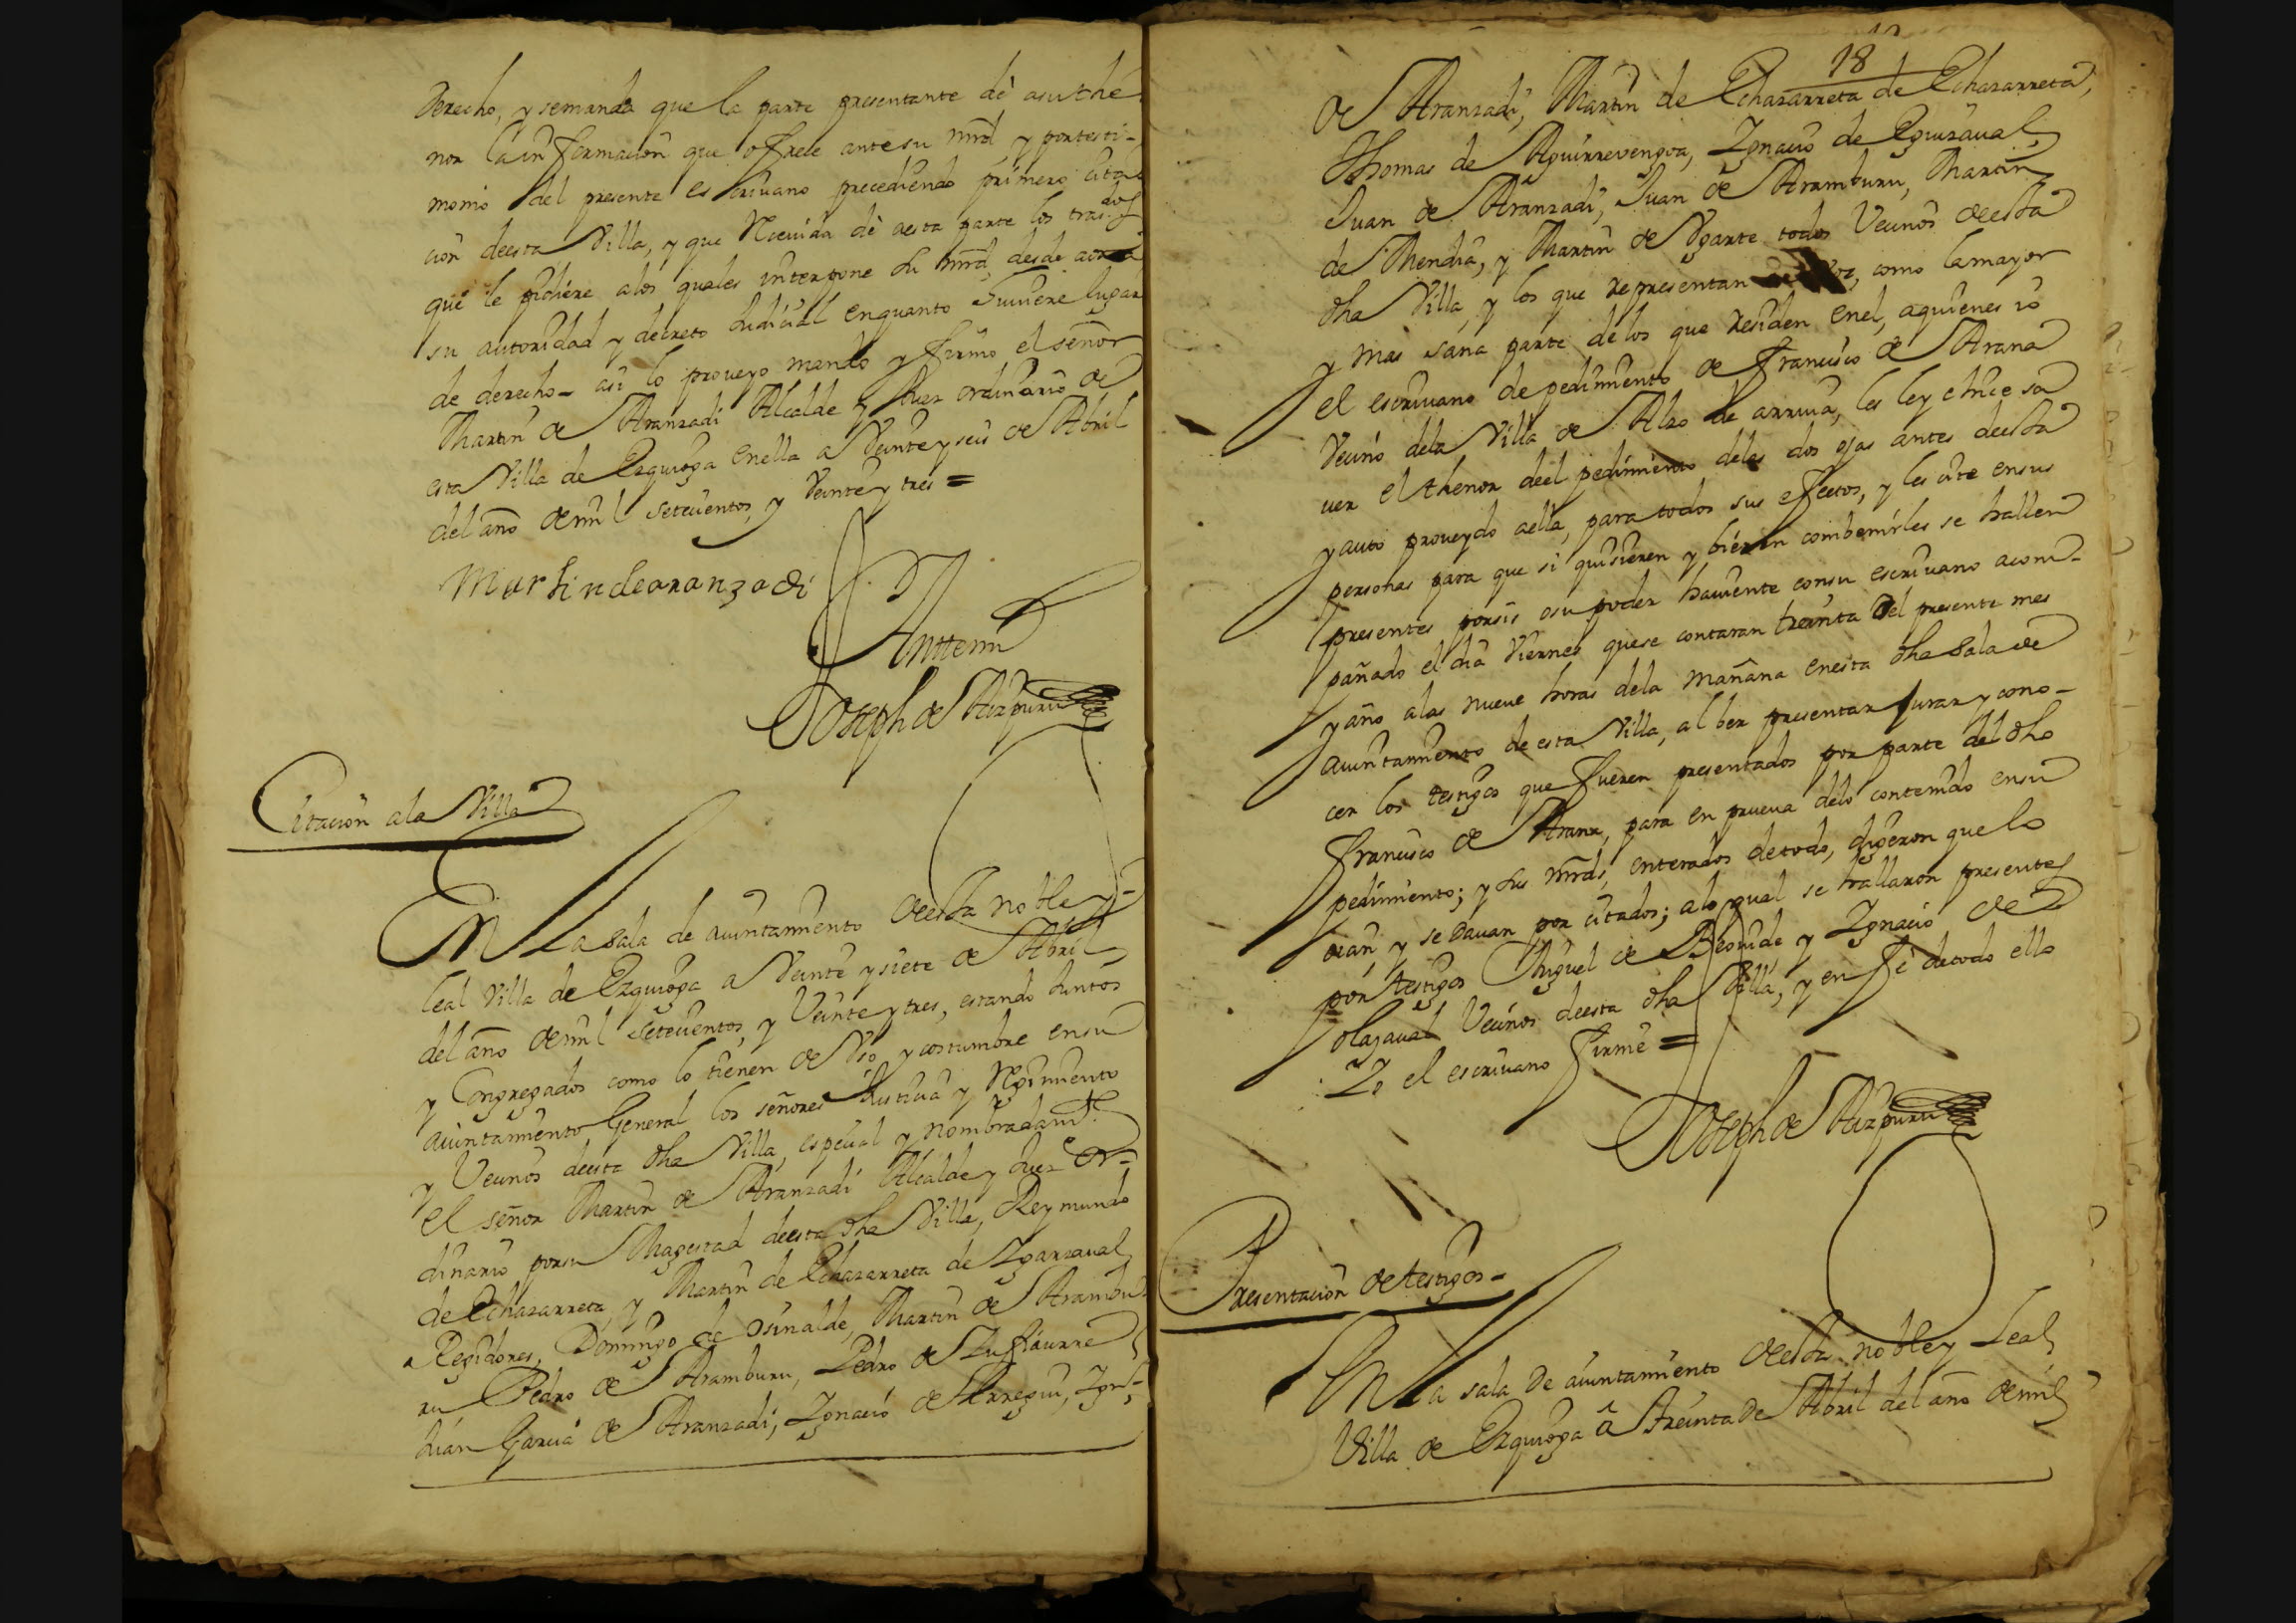 derecho, y semanda que la parte presentante dè asu the
nor la informacion que ofrece ante su mrd y por testi-
monio del presente escriuano precediendo primero cita
cion deesta Villa, y que Rceuida dè aesta parte los trasdos
que le pidiere alos quales interpone su mrd, desde aora
su autoridad y decreto Judicial enquanto Huuiere lugar
de derecho- asi lo proueyo mando y firmo el señor
Martin de Aranzadi Alcalde y Juez ordinario de
esta Villa de Ezquioga enella a Veinte y seis de Abril
del año de mil setecientos, y Veinte y tres =
Martin de aranzadi
Antemi
Joseph de Aizpuru
Citacion ala Villa
En La sala de auintamiento deesta noble y
leal Villa de Ezquioga a Veinte y siete de Abril
del año de mil Setecientos, y Veinte y tres, estando Juntos
y Congregados como lo tienen de Vso y costumbre ensu
auintamiento General los señores Justicia y Regimiento
y Vecinos deesta dha Villa, especial y nombradamte.
el señor Martin de Aranzadi Alcalde y Juez or-
dinario porsu Magestad deesta dha Villa, Reymundo
de Echazarreta, y Martin de Echazarreta de Igarzaual
Regidores, Domingo de Osinalde, Martin de Arambu
ru Pedro de Aramburu, Pedro de Zufiaurre
Juan Garcia de Aranzadi, Ignacio de Arregui,
18
de Aranzadi, Martin de Echazarreta de Echazarreta,
Thomas de Aguirrevengoa, Ignacio de Eguizaual,
Juan de Aranzadi, Juan de Aramburu, Martin
de Mendia, y Martin de Vgarte todos Vecinos deesta
dha Villa, y los que representan como la mayor
y mas sana parte delos que residen enel, aquienes io
el escriuano de pedimiento de Francisco de Arana
Vecino dela Villa de Alzo de arriua, les ley e hice sa
uer el thenor deel pedimiento delas dos ojas antes deesta
y auto proueydo aella, para todos sus efectos, y les cite ensus
personas para que si quisieren y bieren combenirles se hallen
presentes porsi osu poder hauiente consu escriuano acom-
pañado el dia Viernes quese contaran treinta del presente mes
y año alas nueve horas dela mañana enesta dha Sala de
auintamiento de esta Villa, al ber presentar Jurar y cono-
cer los testigos que fueren presentados por parte del dho
Francisco de Arana, para en prueua delo contenido ensu
pedimiento; y sus mrds, enterados detodo, digeron que lo
oian, y se dauan por citados; alo qual se hallaron presentes
por testigos Miguel de Beorride, y Ignacio de
Olazaual Vecinos deesta dha Villa, y en fé detodo ello
Io el escriuano firme =
Joseph de Aizpuru
Presentacion de testigos-
En La sala de auintamiento deesta noble y Leal
Villa de Ezquioga â treinta de Abril del año de mil